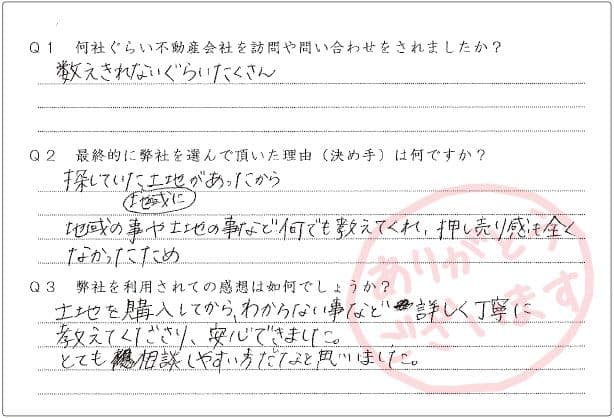 Q1 何社ぐらい不動産会社を訪問や問い合わせをされましたか?
数えきれないぐらいたくさん
Q2 最終的に弊社を選んで頂いた理由(決め手)は何ですか?
探していた土地があったから
地域に
地域の事や土地の事など何でも教えてくれ、押し売り感も全く
なかったため
Q3 弊社を利用されての感想は如何でしょうか?
土地を購入してから、わからない事など詳しく丁寧に
教えてくださり、安心できました。
とても相談しやすい方だなと思いました。
ありがとう
ございます